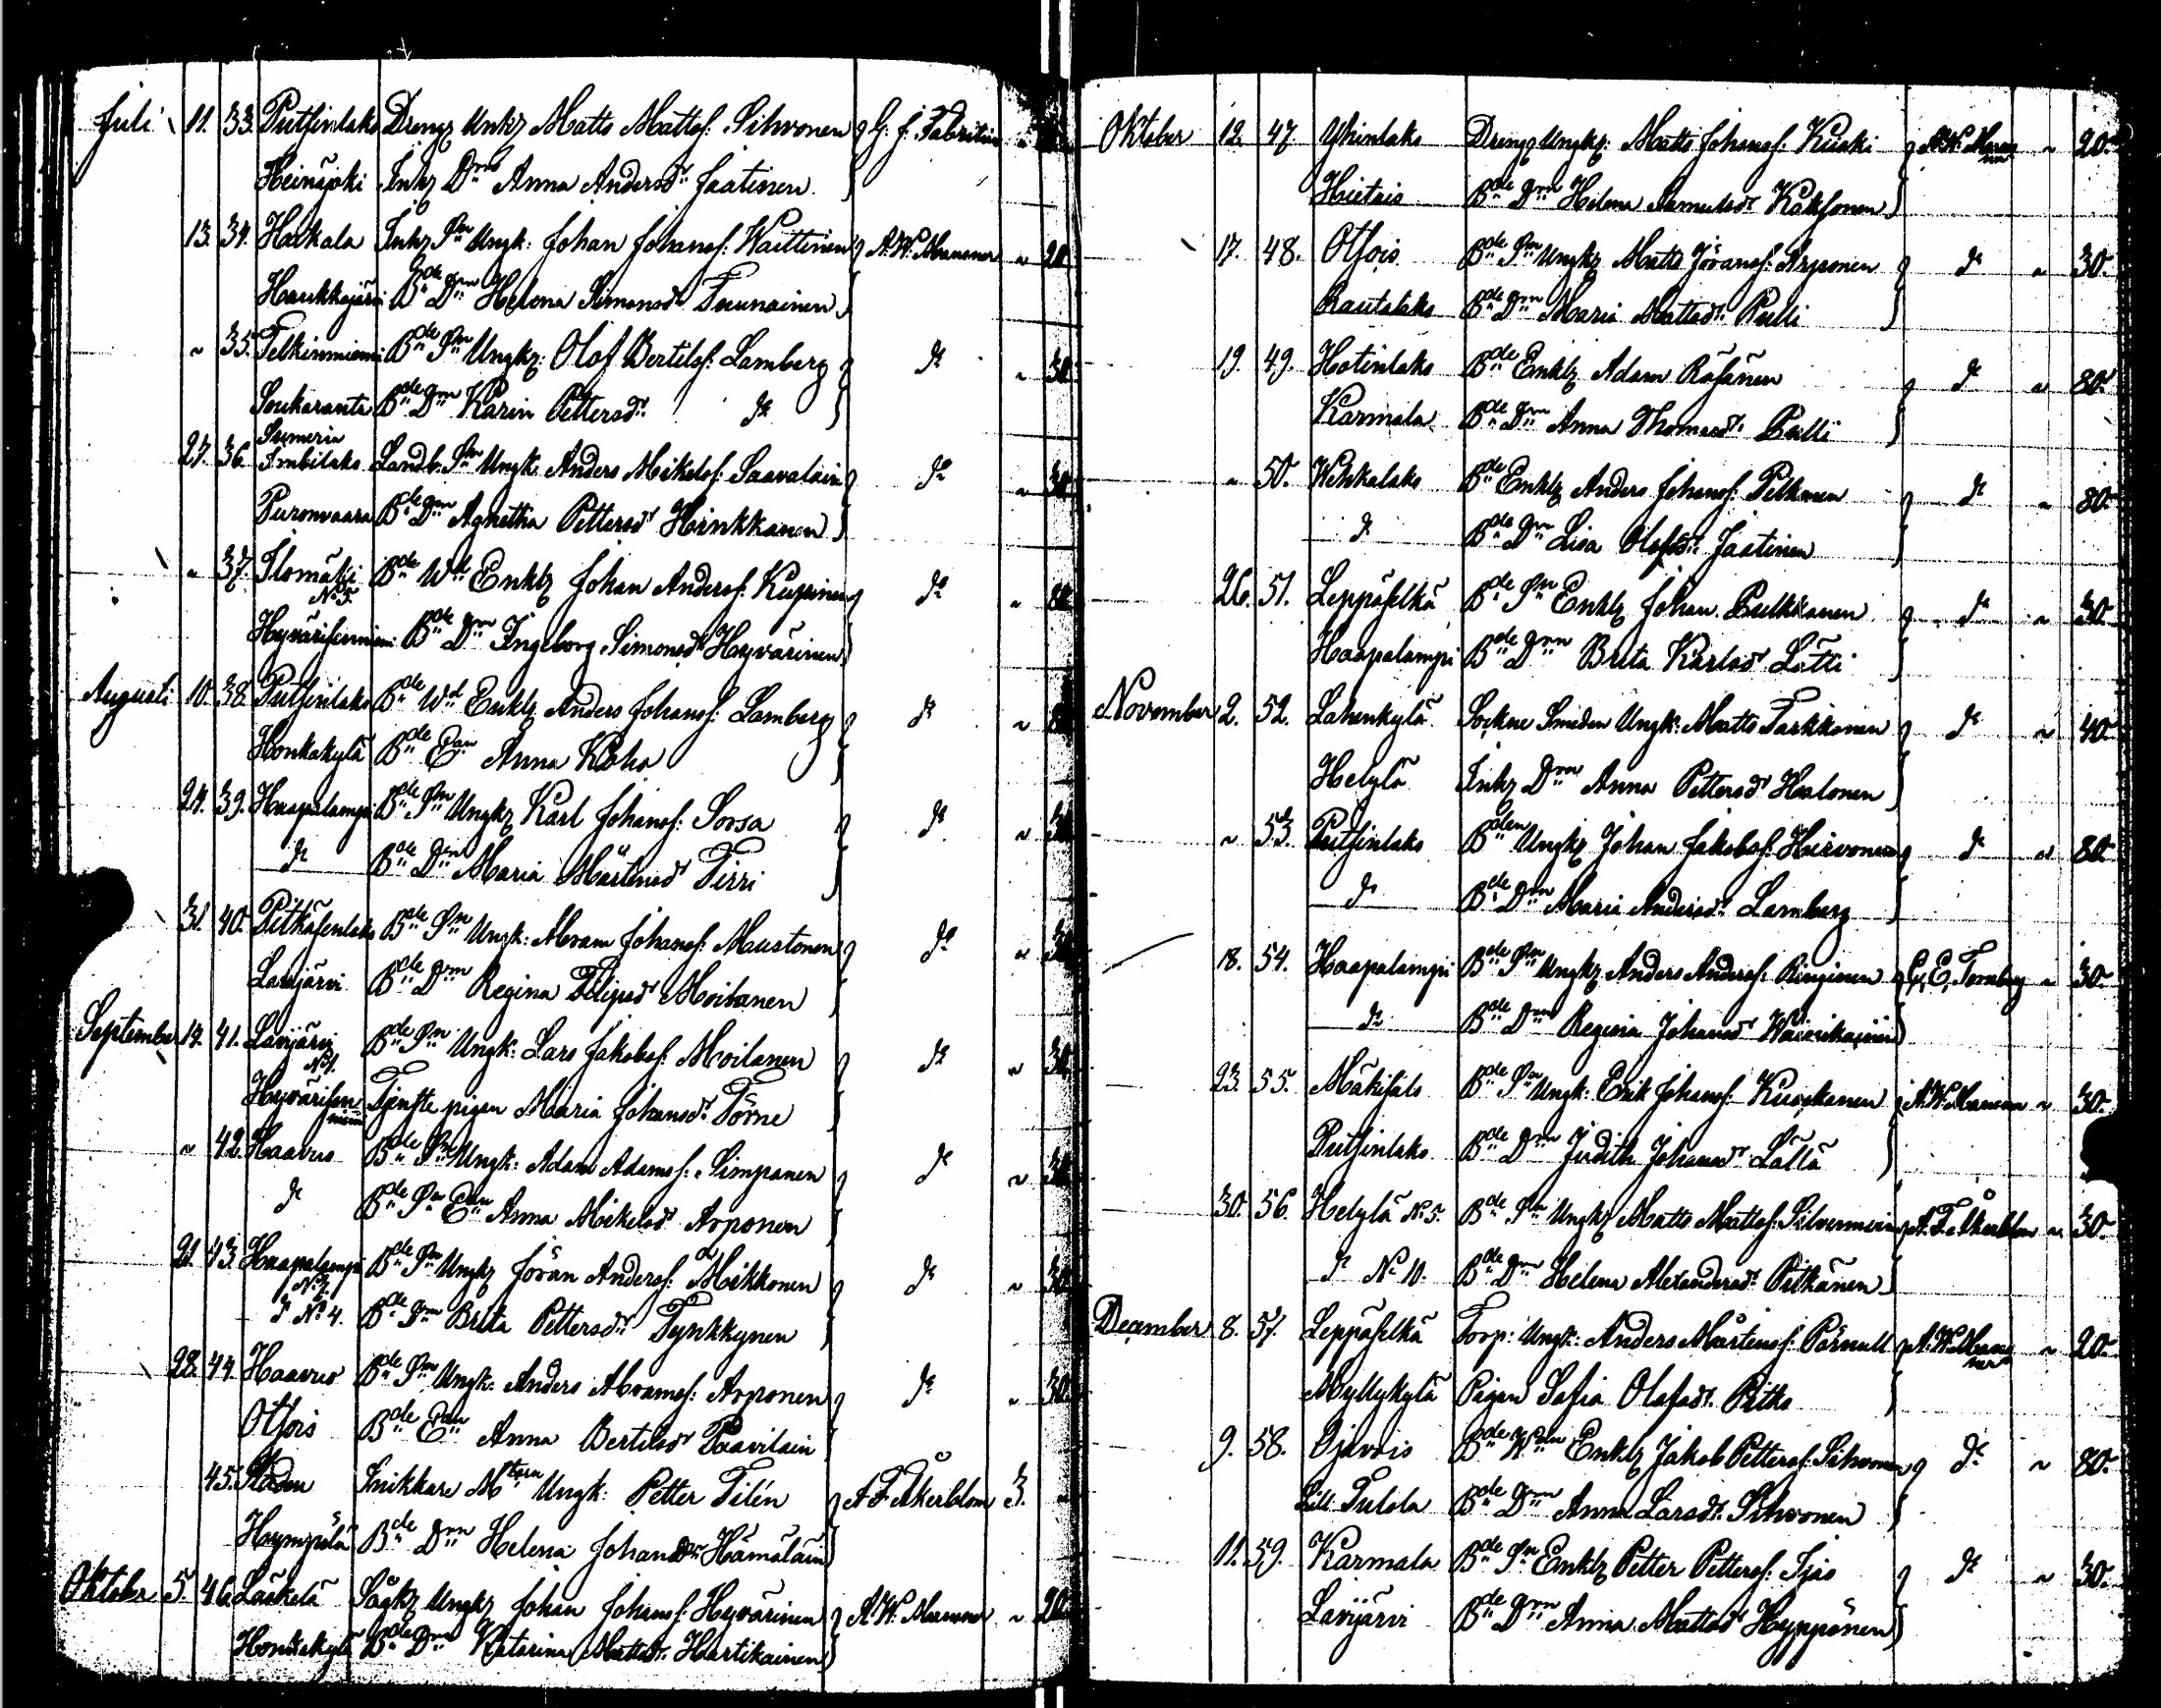 Juli 11. 33. Putsinlaks Dreng Unkr Matts Mattss: Sihvonen G. J. Fabritius
Heinäjoki Inhr Drn Anna Andersdr Jaatinen
13. 34. Haikala Inhr Sn Ungk: Johan Johanss: Waittinen A. W. Manner " 20
Haukkajärvi Bde Drn Helena Simonsdr Tounainen
" 35. Telkinniemi Bde Sn Ungkr: Olof Bertilss: Lamberg dr " 30
Soukaranta Bde Drn Karin Pettersdr dr
Sumeria
27. 36. Imbilaks Landb. Sn Ungk: Anders Mikelss: Saavalain do " 30
Puronvaara Bde Drn Agnetha Pettersdr Hinkkanen
" 37. Ilomäki Bde Wd Enklg Johan Anderss: Kupinen do " 80
No 5.
Hyvärisenniemi Bde Drn Ingeborg Simonsdr Hyvärinen
Augusti 10. 38. Putsinlaks Bde Wd Enklg Anders Johanss: Lamberg dr " 80
Honkakylä Bde Ean Anna Koho
24. 39. Haapalampi Bde Sn Ungkr Karl Johanss: Sorsa dr " 30
dr Bde Drn Maria Mårtensdr Tirri
31. 40. Pitkäsenlaks Bde Sn Ungk: Abram Johanss: Mustonen do " 30
Lavijärvi Bde Drn Regina Filipsdr Moilanen
September 14. 41. Lavijärvi Bde Sn Ungk: Lars Jakobss: Moilanen dr " 30
No 1.
Hyvärisenniemi Tjenste pigan Maria Johansdr Törne
" 42. Haavus Bde Sn Ungk: Adam Adamss: Simpanen dr " 30
dr Bde Sn Ean Anna Mikelsdr Arponen
21. 43. Haapalampi Bde Sn Ungkr Jöran Anderss: Mikkonen dr " 30
dr No 4. Bde Drn Brita Pettersdr Tynkkynen
28. 44. Haavus Bde Sn Ungk: Anders Abramss: Arponen dr " 30
Otsois Bde Ean Anna Bertilsdr Paavilain
45. Staden Snikkare Mstarn Ungk: Petter Tilén A F Åkerblom 3.
Hympölä Bde Drn Helena Johansdr Hämäläin
Oktober 5. 46. Läskelä Sågkr Ungkr Johan Johanss: Hyvärinen A. W. Manner " 20
Honkakylä Bde Drn Katarina Mattsdr Hartikainen
Oktober 12. 47. Uhinlaks Dreng Ungkr: Matts Johanss: Kuski A. W. Manner " 20.
Hietais Bde Drn Helena Samuelsdr Koksonen
17. 48. Otsois Bde Sn Ungkr Matts Jöranss: Arponen dr " 30.
Rautalaks Bde Drn Maria Mattsdr Pulli
19. 49. Hotinlaks Bde Enklg Adam Räsänen dr " 80.
Karmala Bde Drn Anna Thomasdr Pulli
" 50. Wehkalaks Bde Enklg Anders Johanss: Pelkonen dr " 80.
dr Bde Drn Lisa Olofsdr Jaatinen
26. 51. Leppäselkä Bde Sn Enklg Johan Pulkkanen dr " 30.
Haapalampi Bde Drn Brita Karlsdr Lätti
November 2. 52. Lahenkylä Sockne Smeden Ungk: Matts Tarkkonen dr " 40.
Helylä Inhr Drn Anna Pettersdr Halonen
" 53. Putsinlaks Bden Ungkr Johan Jakobss: Hirvonen dr " 80.
dr Bde Drn Maria Andersdr Lamberg
18. 54. Haapalampi Bde Sn Ungkr Anders Anderss: Ringinen E. Tornberg " 30.
dr Bde Drn Regina Johansdr Waivikainen
23. 55. Mäkisalo Bde Sn Ungk: Erik Johanss: Kuokanen A. W. Manner " 30.
Putsinlaks Bde Drn Judith Johansdr Lättä
30. 56. Helylä No 5. Bde Sn Ungkr Matts Mattss: Silvennoin A. F. Åkerblom " 30.
dr No 10. Bde Drn Helena Alexandersdr Pitkänen
December 8. 57. Leppäselkä Torp: Ungk: Anders Mårtenss: Pärnull A. W. Manner " 20.
Myllykylä Pigan Sofia Olofsdr Pitko
9. 58. Ojavois Bde Wdn Enklg Jakob Petterss: Sihvonen dr " 80.
Lill Tulola Bde Drn Anna Larsdr Sihvonen
11. 59. Karmala Bde Sn Enklg Petter Petterss: Ijäs dr " 30.
Lavijärvi Bde Drn Anna Mattsdr Hyppönen